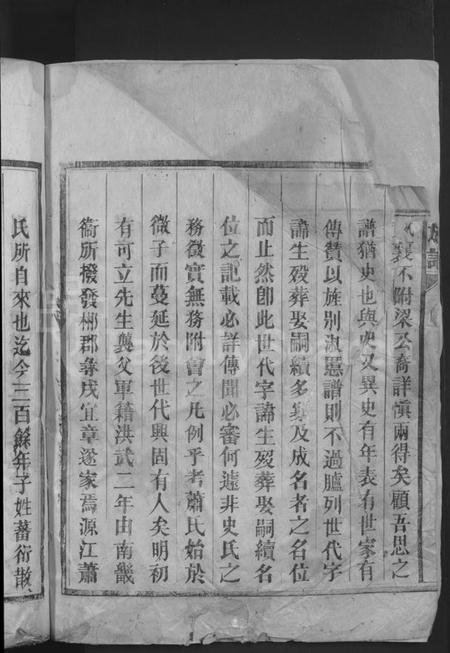 襲不附梁公裔詳慎兩得矣顧吾思之
譜猶史也與史又異史有年表有世家有
傳贊以旌別淑慝譜則不過臚列世代字
諱生歿葬娶嗣續多寡及成名者之名位
而止然卽此世代字諱生歿葬娶嗣續名
位之記載必詳傳聞必審何遽非史氏之
務徵實無務附會之凡例乎考蕭氏始於
微子而蔓延於後世代興固有人矣明初
有可立先生襲父軍籍洪武二年由南畿
衞所撥發郴郡彝戍宜章遂家焉源江蕭
氏所自來也迄今三百餘年子姓蕃衍散